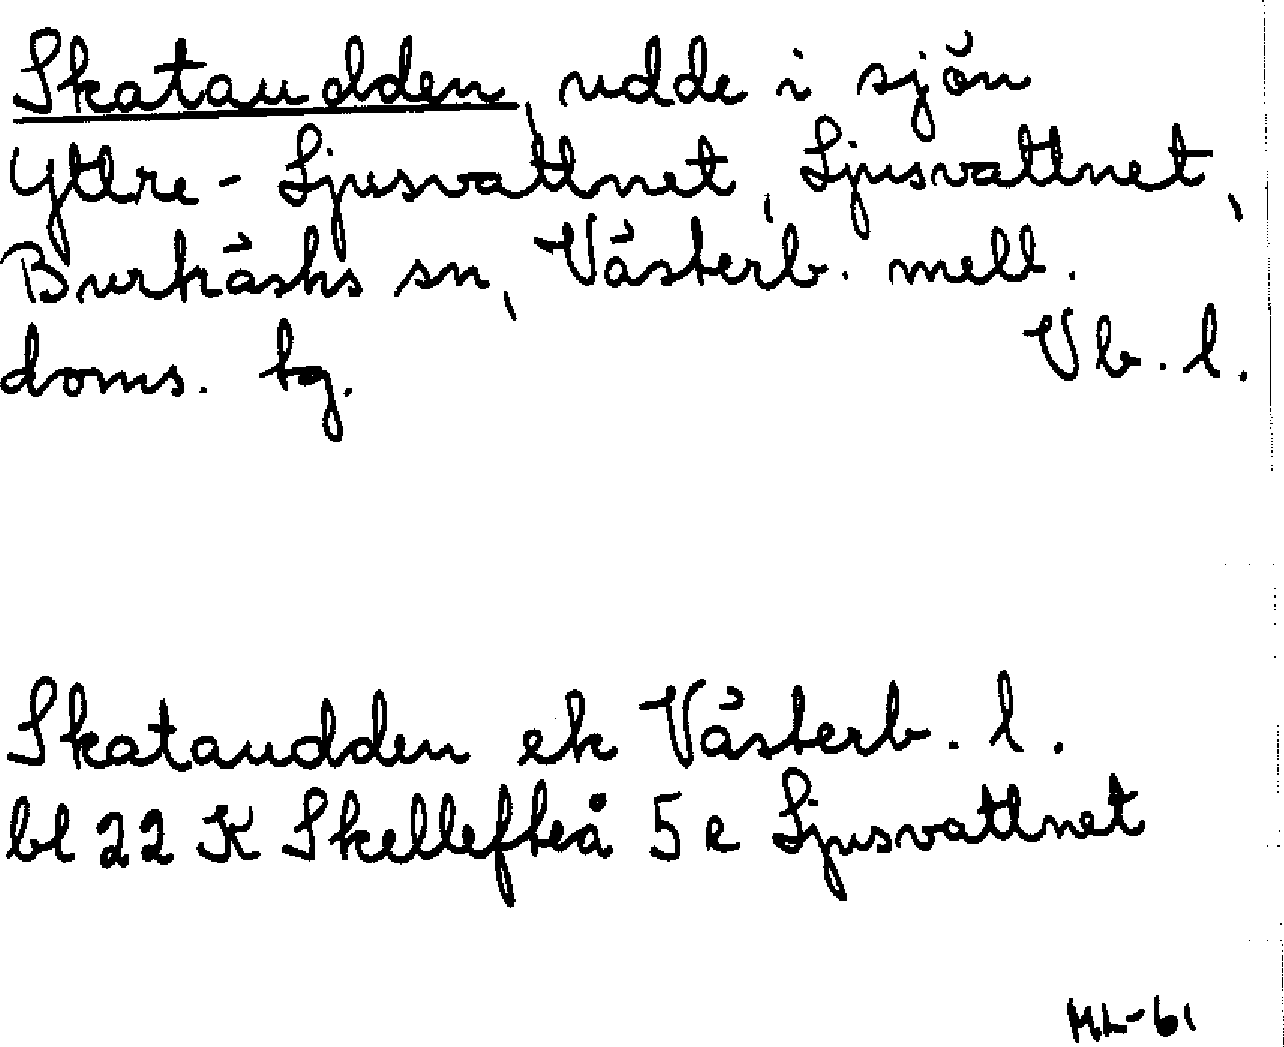 Skataudden, udde i sjön
Yttre-Ljusvattnet, Ljusvattnet,
Burträsks sn, Västerb. mell.
doms. tg. Vb. l.
Skataudden ek Västerb. l.
bl 22 K Skellefteå 5 e Ljusvattnet
ML-61